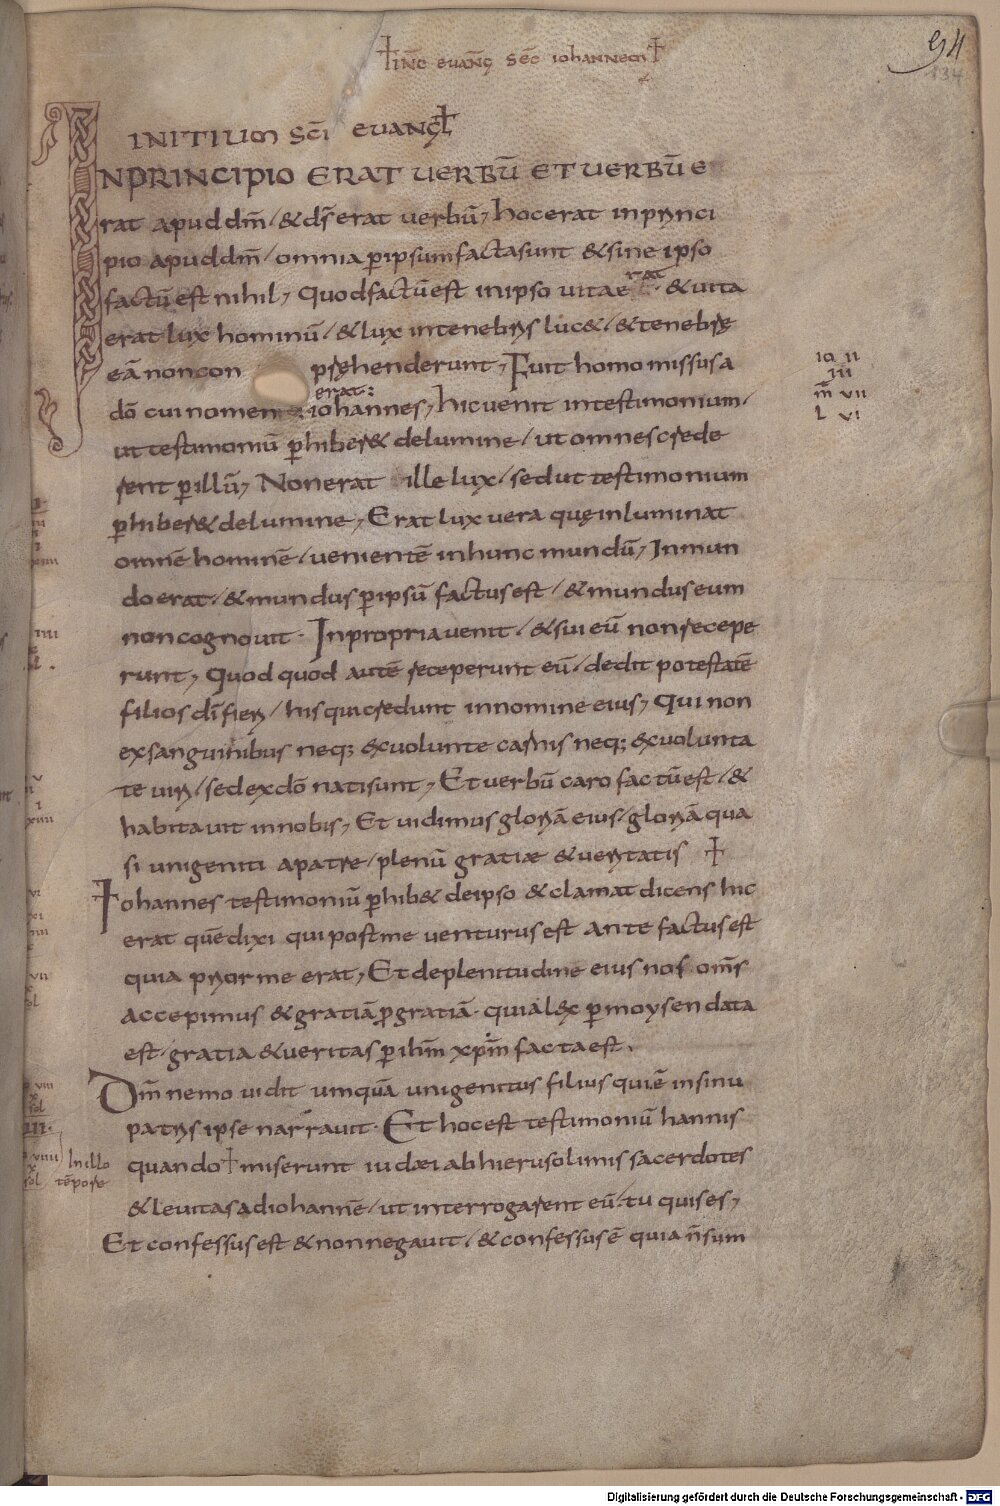 †inc̄ euanḡ sec̄ iohannem†
94
134
INITIUM SC̄I EUANGł
INPRINCIPIO ERAT UERBŪ ET UERBŪ E
rat apud dm̄ / & ds̄ erat uerbū, hoc erat in princi
pio apud dm̄ / omnia p̱ ipsum facta sunt & sine ipso
factū est nihil, Quod factū est in ipso uita erat · & uita
erat lux hominū / & lux in tenebris luc& / & tenebrę
eā non con prehenderunt, Fuit homo missus a
dō cui nomen erat: iohannes, hic uenit in testimonium /
ut testimoniū p̱hiber& de lumine / ut omnes crede
rent p̱ illū, Non erat ille lux / sed ut testimonium
p̱hiber& de lumine, Erat lux uera quę inluminat
omnē hominē / uenientē in hunc mundū, In mun
do erat / & mundus p̱ ipsū factus est / & mundus eum
non cognouit · In propria uenit / & sui eū non recepe
runt, Quod quod autē receperunt eū / dedit potestatē
filios dī fieri / his qui credunt in nomine eius, Qui non
ex sanguinibus neq; ex uolunte carnis neq; ex uolunta
te uiri / sed ex dō nati sunt, Et uerbū caro factū est / &
habitauit in nobis, Et uidimus gloriā eius / gloriā qua
si unigeniti a patre / plenū gratiæ & ueritatis †
Iohannes testimoniū p̱hib& de ipso & clamat dicens hic
erat quē dixi qui post me uenturus est ante factus est
quia prior me erat, Et de plenitudine eius nos om̄s
accepimus & gratiā p̱ gratiā · quia lex p̱ moysen data
est · gratia & ueritas p̱ ihm̄ xpm̄ facta est ·
Dm̄ nemo uidit umquā unigenitus filius qui ē in sinu
patris ipse narrauit · Et hoc est testimoniū hannis
quando † miserunt iudæi ab hierusolimis sacerdotes
& leuitas ad iohannē / ut interrogarent eū / tu quis es,
Et confessus est & non negauit / & confessus ē quia n̄ sum
io II
III
m̄ VII
L VI
In illo
tēpore
Digitalisierung gefördert durch die Deutsche Forschungsgemeinschaft - DFG